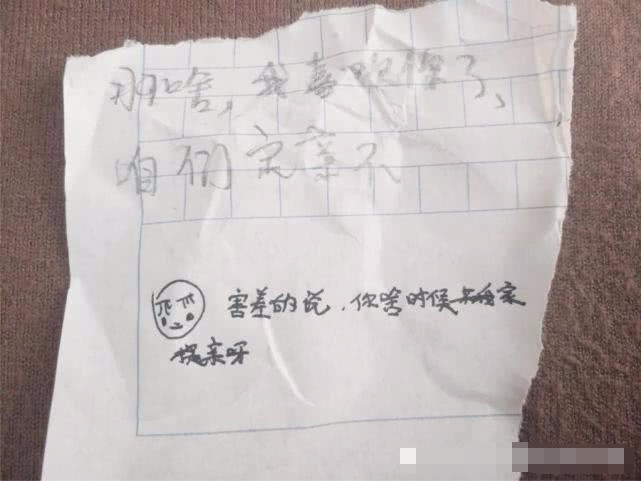 那啥,我喜欢你了、
咱们完事不
害羞的说,你啥时候上我家
提亲呀